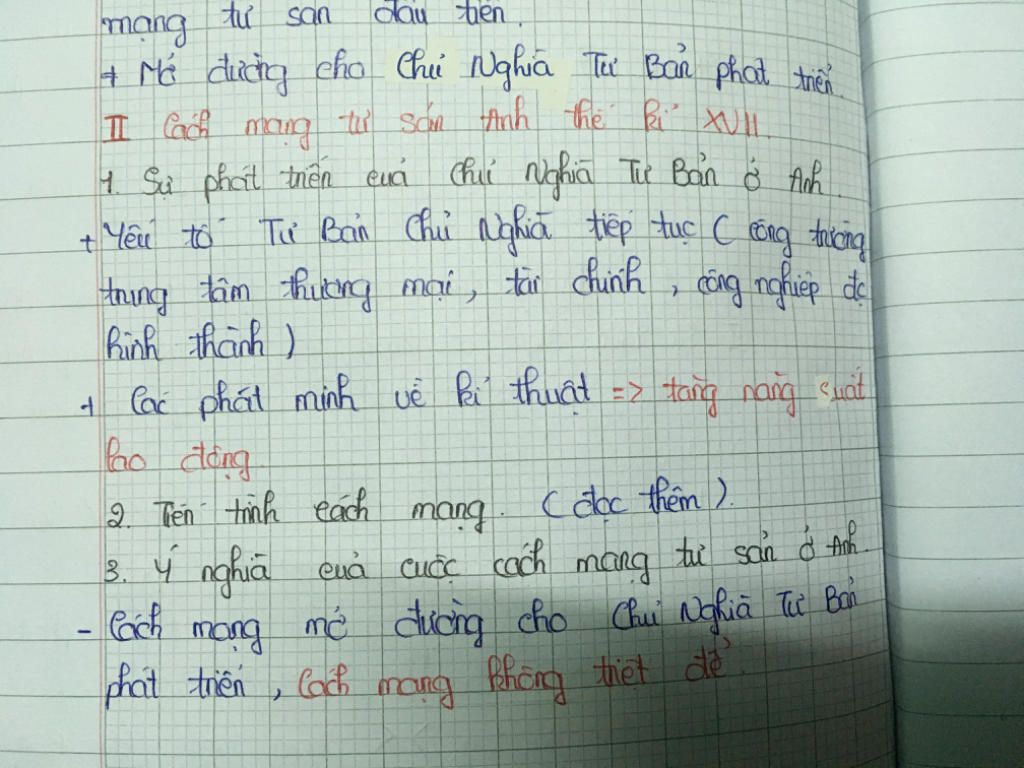 mạng tư sản đầu tiên.
+ Mở đường cho Chủ Nghĩa Tư Bản phát triển.
II Cách mạng tư sản Anh thế kỉ XVII.
1. Sự phát triển của Chủ Nghĩa Tư Bản ở Anh.
+ Yếu tố Tư Bản Chủ Nghĩa tiếp tục ( công trường
trung tâm thương mại, tài chính, công nghiệp đc
hình thành )
+ Các phát minh về kĩ thuật => tăng năng suất
lao động.
2. Tiến trình cách mạng. ( đọc thêm ).
3. Ý nghĩa của cuộc cách mạng tư sản ở Anh.
- Cách mạng mở đường cho Chủ Nghĩa Tư Bản
phát triển, Cách mạng không triệt để.